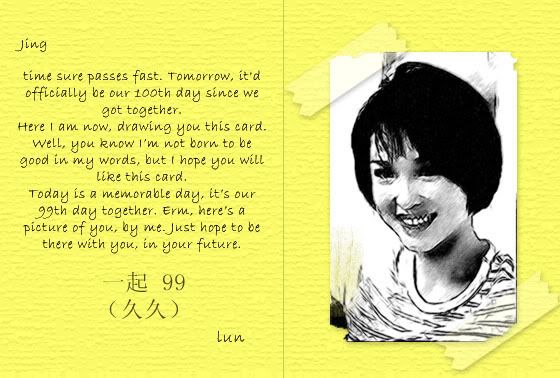 Jing
time sure passes fast. Tomorrow, it'd
officially be our 100th day since we
got together.
Here I am now, drawing you this card.
Well, you know I'm not born to be
good in my words, but I hope you will
like this card.
Today is a memorable day, it's our
99th day together. Erm, here's a
picture of you, by me. Just hope to be
there with you, in your future.
一起 99
（久久）
lun